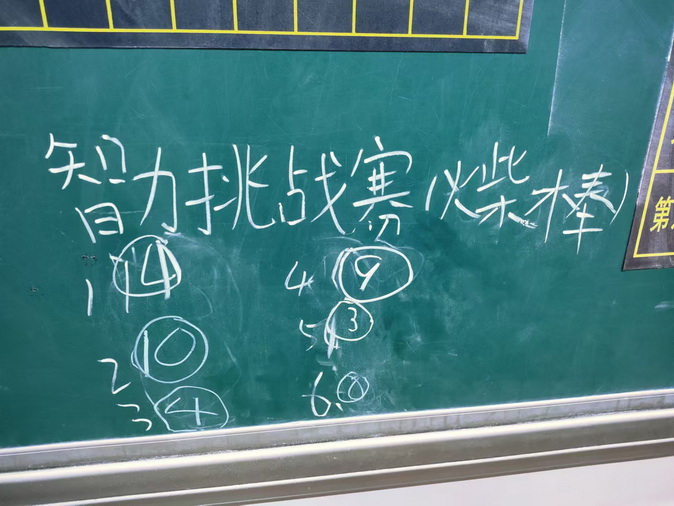 智力挑战赛(火柴棒)
1 14 4 9
2 10 5 3
3 4 6. 0
第